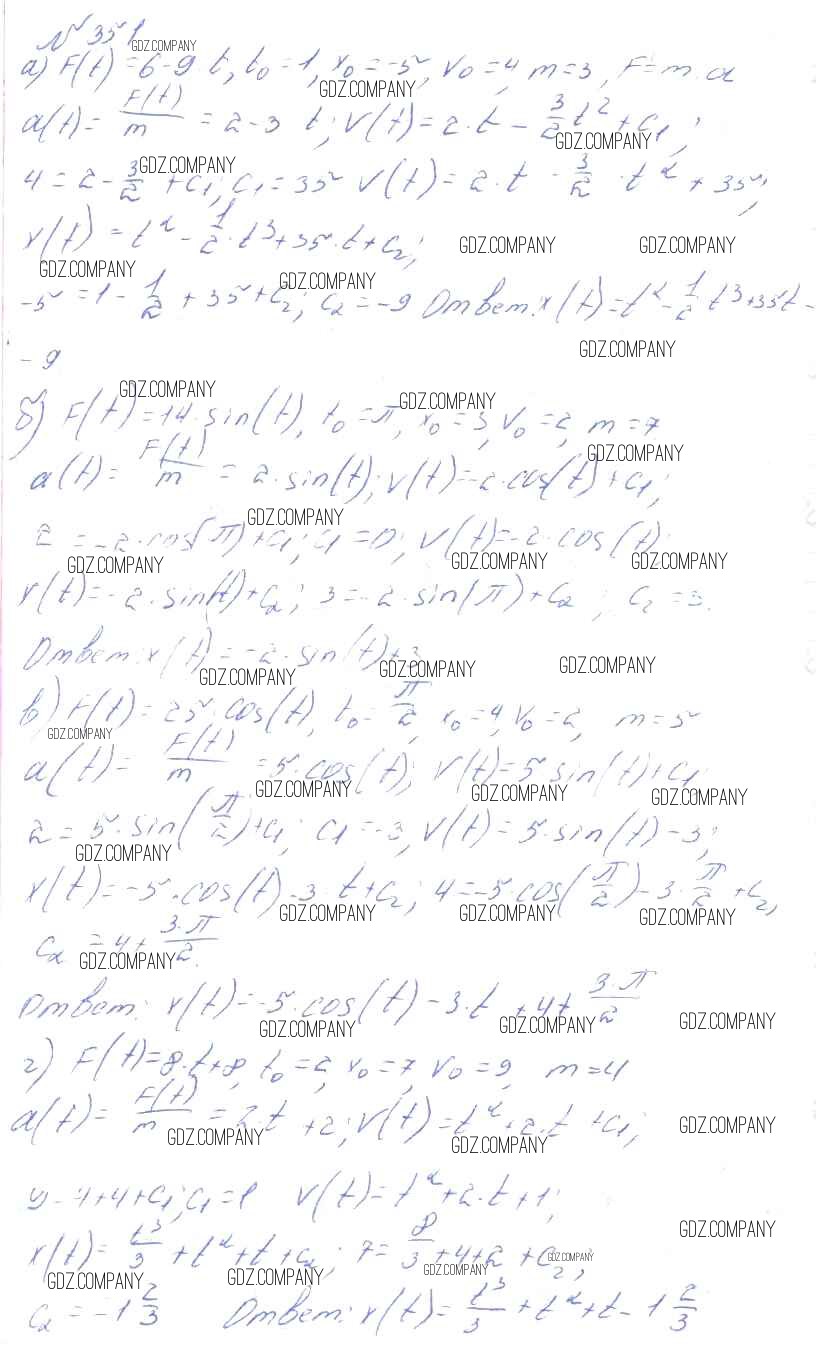 № 351
а) F(t) = 6-9 t, t₀ = 1, x₀ = -5, v₀ = 4, m = 3, F = m·a
a(t) = F(t)/m = 2-3 t; v(t) = 2·t - 3/2 t² + C₁;
4 = 2 - 3/2 + C₁; C₁ = 35 v(t) = 2·t - 3/2 · t² + 35;
x(t) = t² - 1/2 · t³ + 35·t + C₂;
-5 = 1 - 1/2 + 35 + C₂; C₂ = -9 Ответ: x(t) = t² - 1/2 t³ + 35t -
- 9
б) F(t) = 14·sin(t), t₀ = π, x₀ = 3, v₀ = 2, m = 7
a(t) = F(t)/m = 2·sin(t); v(t) = -2·cos(t) + C₁;
2 = -2·cos(π) + C₁; C₁ = 0; v(t) = -2·cos(t);
x(t) = -2·sin(t) + C₂; 3 = -2·sin(π) + C₂; C₂ = 3.
Ответ: x(t) = -2·sin(t) + 3
в) F(t) = 25·cos(t), t₀ = π/2, x₀ = 4, v₀ = 2, m = 5
a(t) = F(t)/m = 5·cos(t); v(t) = 5 sin(t) + C₁;
2 = 5·sin(π/2) + C₁; C₁ = -3, v(t) = 5·sin(t) - 3;
x(t) = -5·cos(t) - 3·t + C₂; 4 = -5·cos(π/2) - 3·π/2 + C₂,
C₂ = 4 + 3·π/2.
Ответ: x(t) = -5·cos(t) - 3·t + 4 + 3·π/2
г) F(t) = 8·t + 8, t₀ = 2, x₀ = 7, v₀ = 9, m = 4
a(t) = F(t)/m = 2·t + 2; v(t) = t² + 2·t + C₁;
4 + 4 + C₁; C₁ = 1 v(t) = t² + 2·t + 1;
x(t) = t³/3 + t² + t + C₂; 7 = 8/3 + 4 + 2 + C₂;
C₂ = -1 2/3 Ответ: x(t) = t³/3 + t² + t - 1 2/3
GDZ.COMPANY